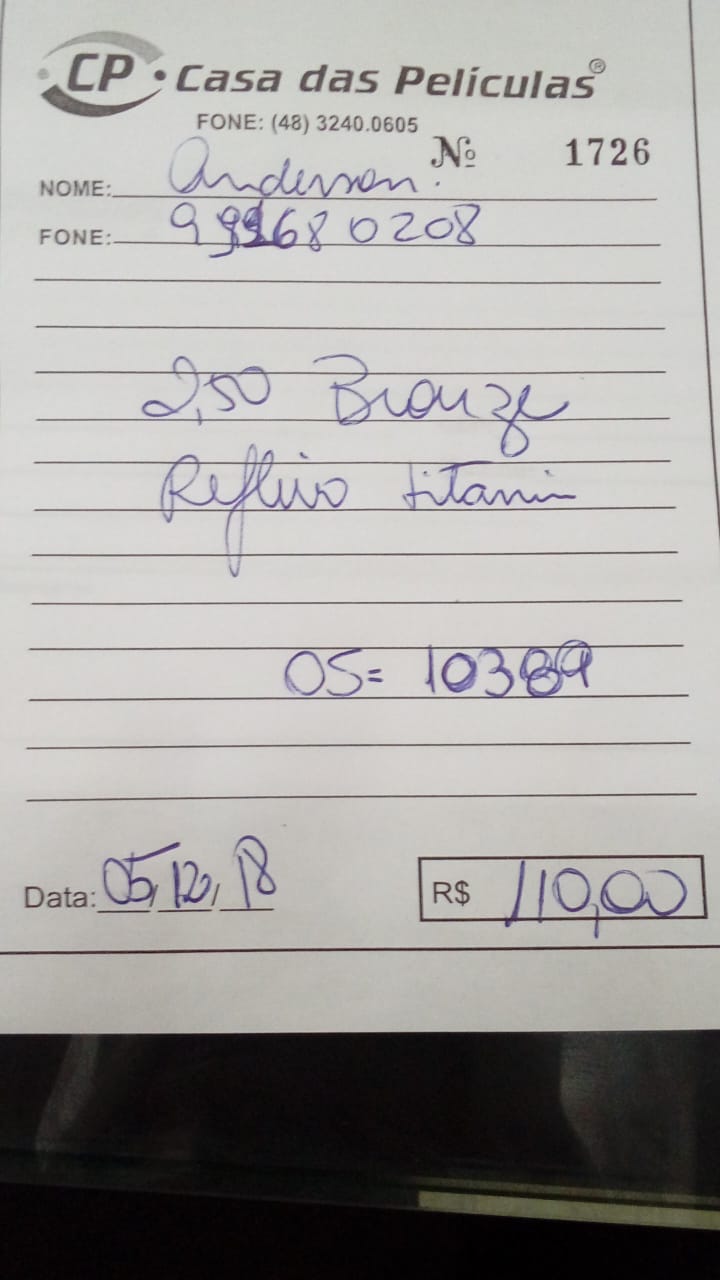 CP • Casa das Películas®
FONE: (48) 3240.0605
Nº 1726
NOME: Anderson.
FONE: 991680208
2,50 Bronze
Reflivo titanin
OS= 10389
Data: 05, 12, 18
R$ 110,00